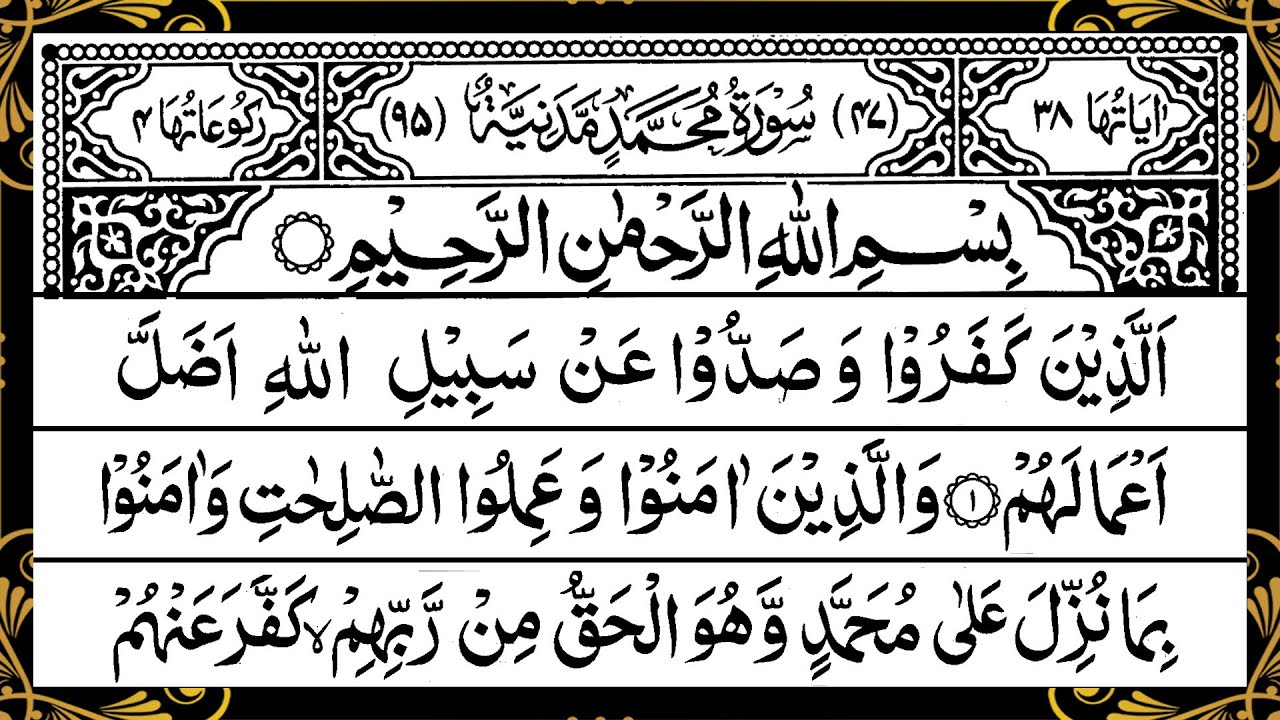 اٰيَاتُهَا ٣٨ (٤٧) سُوْرَةُ مُحَمَّدٍ مَّدَنِيَّةٌ (٩٥) رَكُوْعَاتُهَا ٤
بِسْمِ اللّٰهِ الرَّحْمٰنِ الرَّحِيْمِ
اَلَّذِيْنَ كَفَرُوْا وَ صَدُّوْا عَنْ سَبِيْلِ اللّٰهِ اَضَلَّ
اَعْمَالَهُمْ ۝١ وَالَّذِيْنَ اٰمَنُوْا وَ عَمِلُوا الصّٰلِحٰتِ وَاٰمَنُوْا
بِمَا نُزِّلَ عَلٰى مُحَمَّدٍ وَّهُوَ الْحَقُّ مِنْ رَّبِّهِمْ ۙ كَفَّرَ عَنْهُمْ